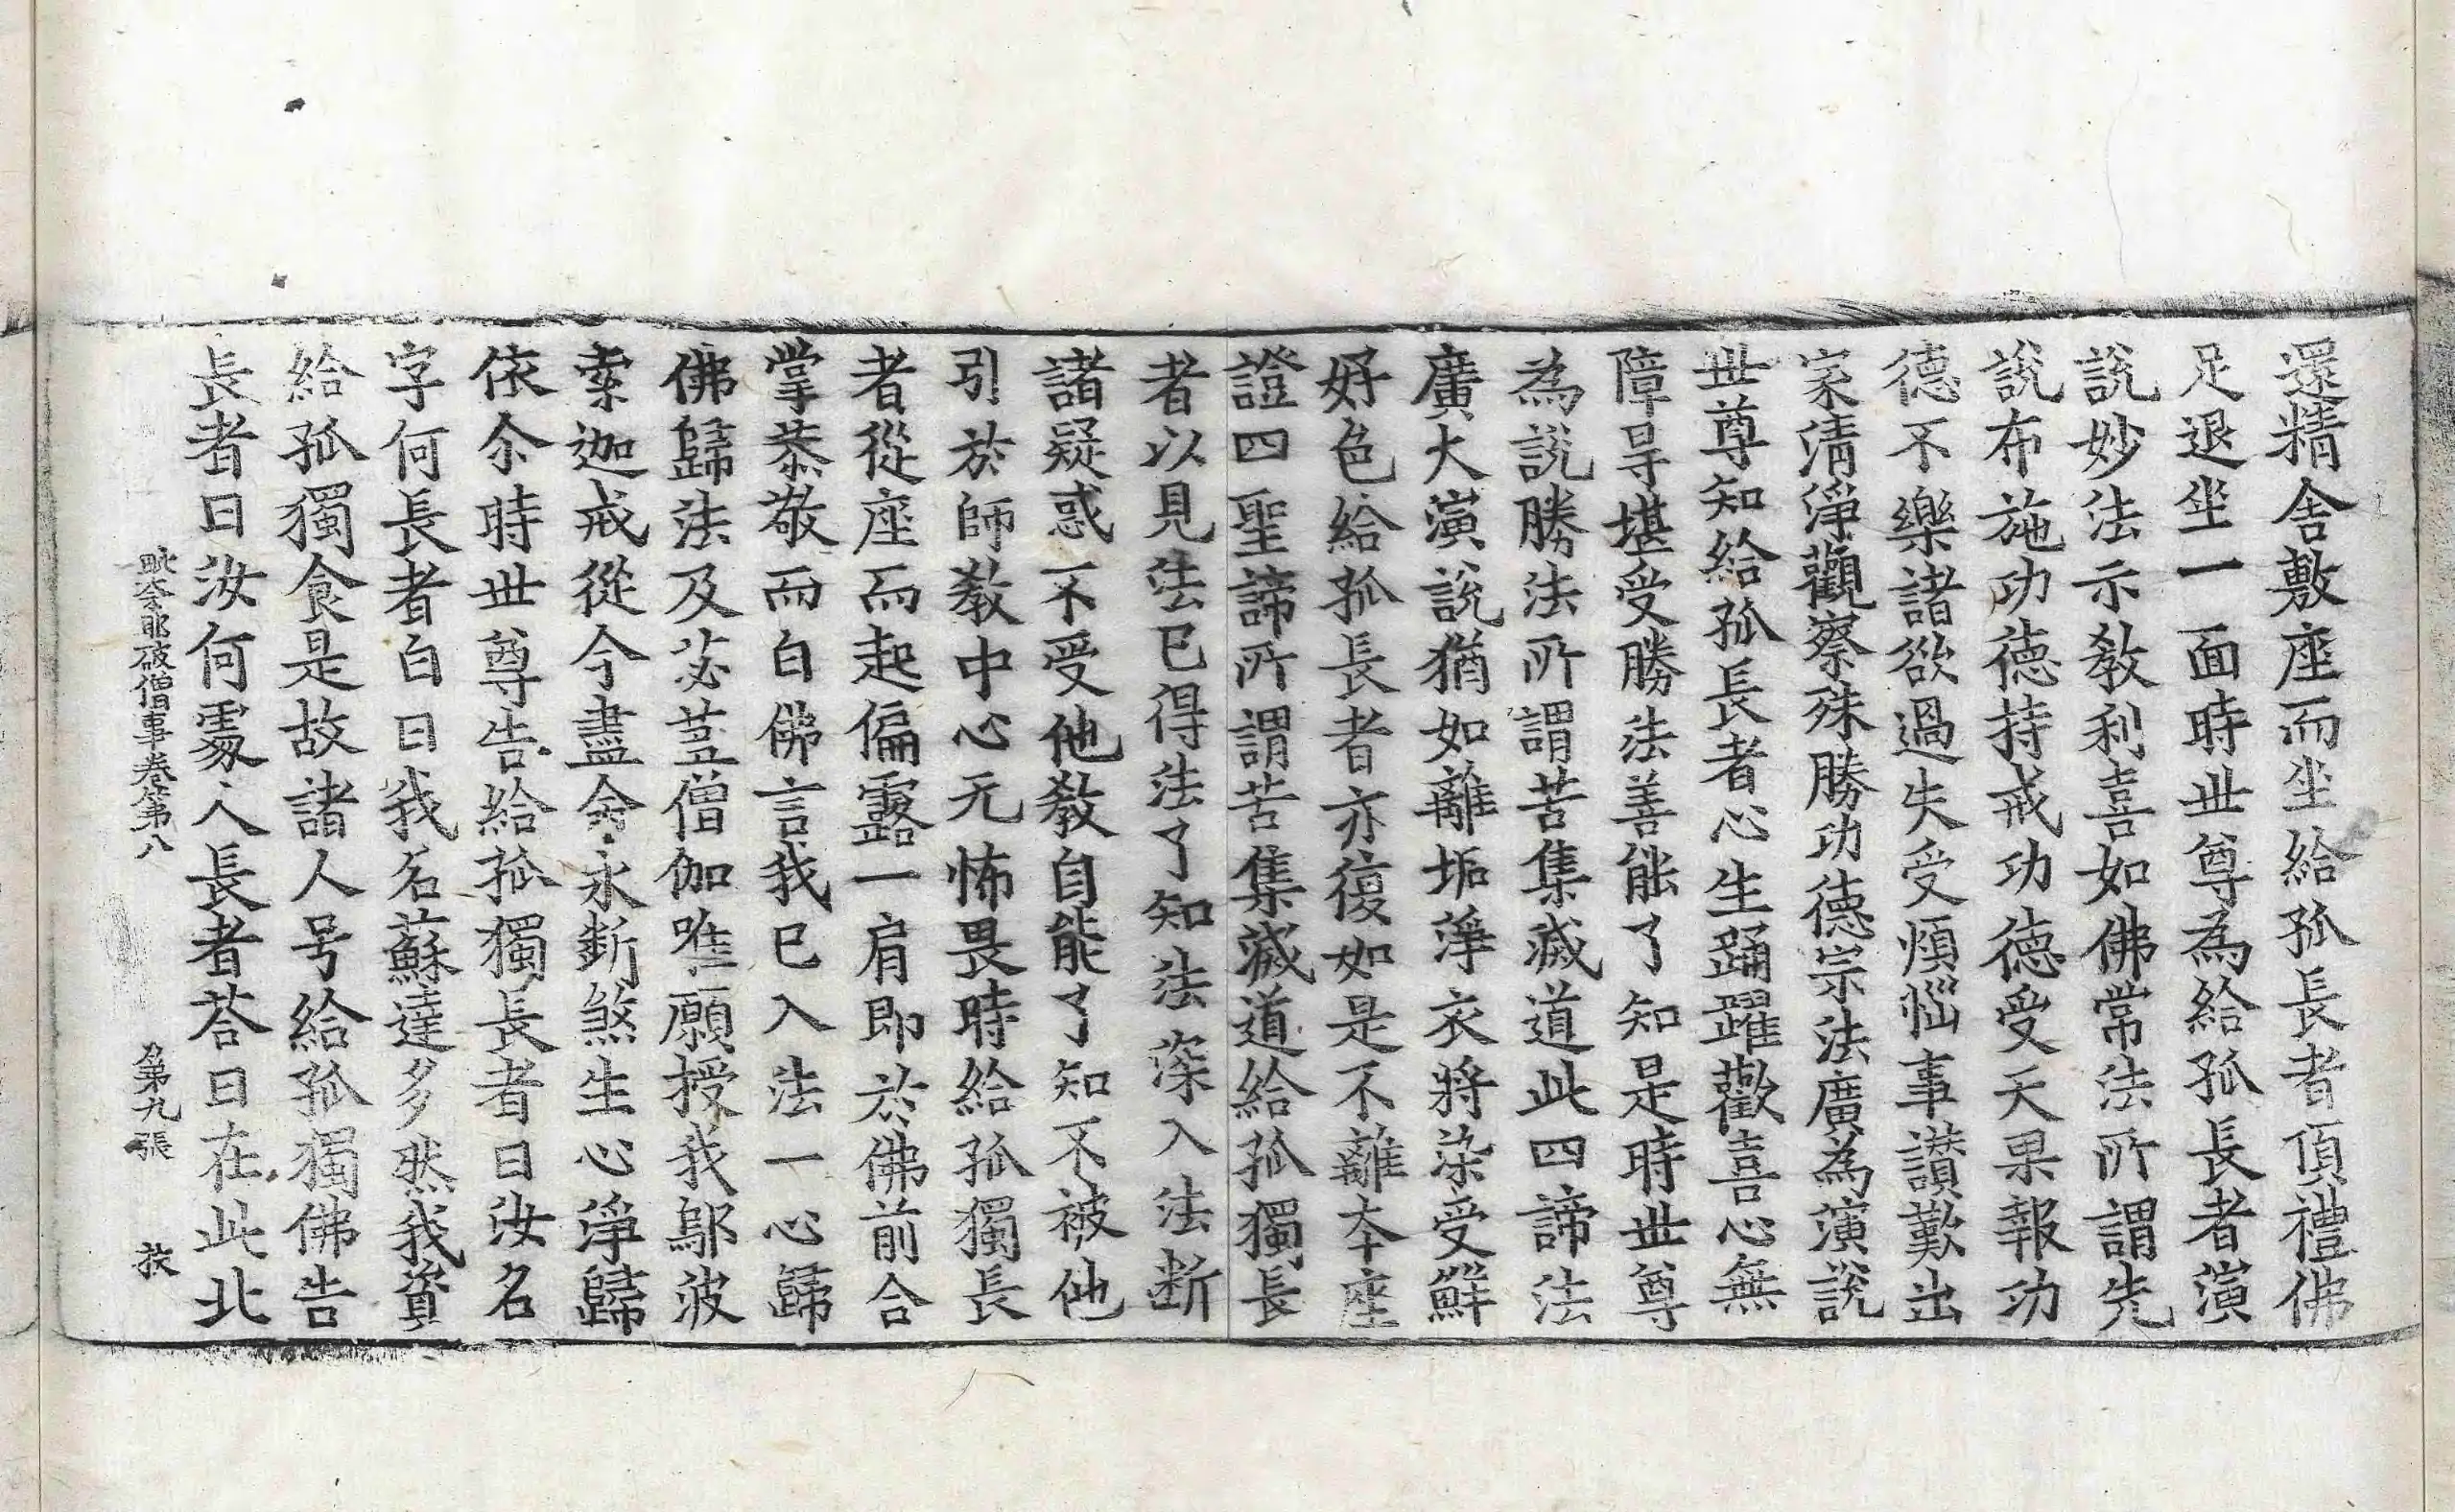 還精舍敷座而坐給孤長者頂禮佛
足退坐一面時世尊為給孤長者演
說妙法示教利喜如佛常法所謂先
說布施功德持戒功德受天果報功
德不樂諸欲過失受煩惱事讃歎出
家清淨觀察殊勝功德宗法廣為演說
世尊知給孤長者心生踊躍歡喜心無
障㝵堪受勝法善能了知是時世尊
為說勝法所謂苦集滅道此四諦法
廣大演說猶如離垢淨衣將染受鮮
好色給孤長者亦復如是不離本座
證四聖諦所謂苦集滅道給孤獨長
者以見法已得法了知法深入法断
諸疑惑不受他教自能了知不被他
引於師教中心无怖畏時給孤獨長
者從座而起偏露一肩即於佛前合
掌恭敬而白佛言我已入法一心歸
佛歸法及苾蒭僧伽唯願授我鄔波
索迦戒從今盡命永斷煞生心淨歸
依尒時世尊告給孤獨長者曰汝名
字何長者白曰我名蘇達多然我資
給孤獨食是故諸人号給孤獨佛告
長者曰汝何處人長者荅曰在此北
毗奈耶破僧事卷第八 第九張